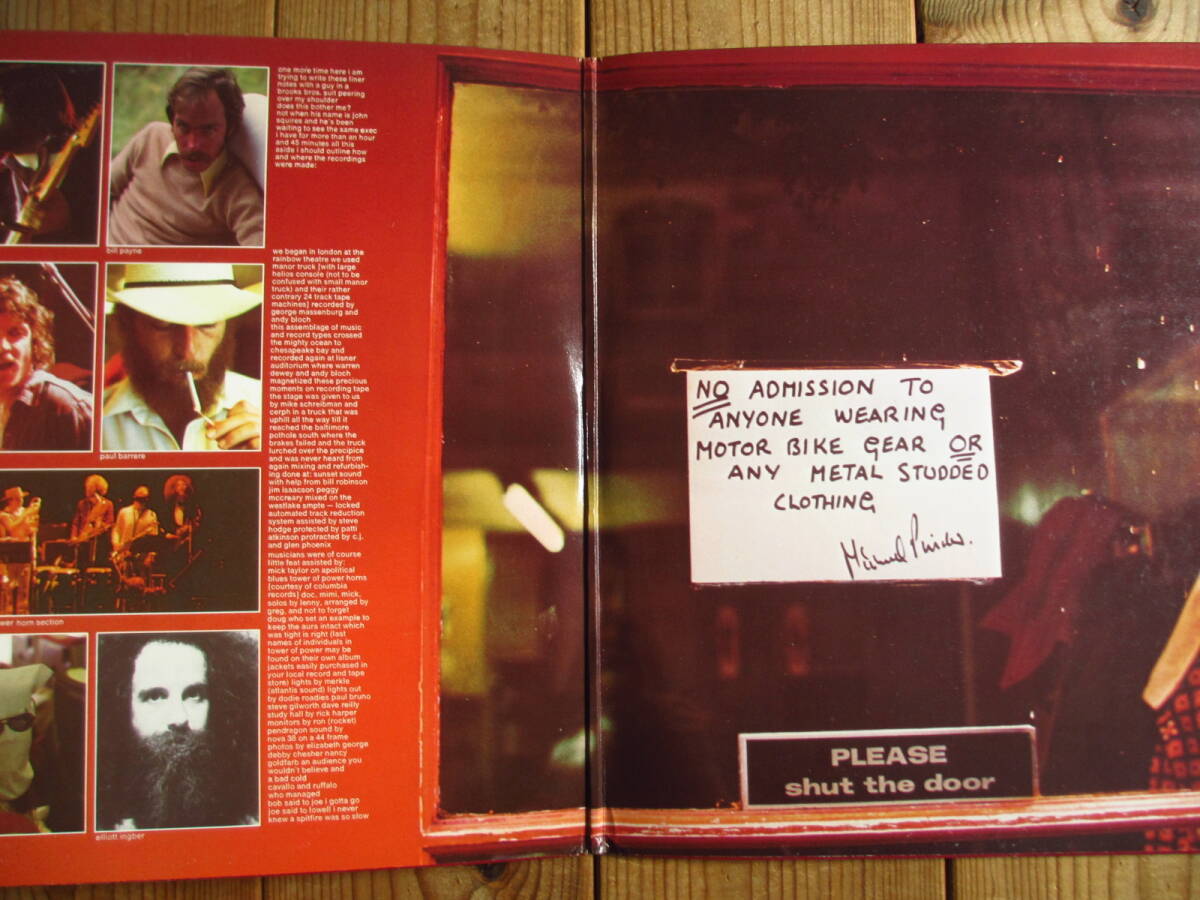 one more time here i am
trying to write these liner
notes with a guy in a
brooks bros. suit peering
over my shoulder
does this bother me?
not when his name is john
squires and he's been
waiting to see the same exec
i have for more than an hour
and 45 minutes all this
aside i should outline how
and where the recordings
were made:
bill payne
we began in london at the
rainbow theatre we used
manor truck [with large
helios console (not to be
confused with small manor
truck) and their rather
contrary 24 track tape
machines] recorded by
george massenburg and
andy bloch
this assemblage of music
and record types crossed
the mighty ocean to
chesapeake bay and
recorded again at lisner
auditorium where warren
dewey and andy bloch
magnetized these precious
moments on recording tape
the stage was given to us
by mike schreibman and
cerph in a truck that was
uphill all the way till it
reached the baltimore
pothole south where the
brakes failed and the truck
lurched over the precipice
and was never heard from
again mixing and refurbish-
ing done at: sunset sound
with help from bill robinson
jim isaacson peggy
mccreary mixed on the
westlake smpte — locked
automated track reduction
system assisted by steve
hodge protected by patti
atkinson protracted by c.j.
and glen phoenix
musicians were of course
little feat assisted by:
mick taylor on apolitical
blues tower of power horns
[courtesy of columbia
records] doc, mimi, mick,
solos by lenny, arranged by
greg, and not to forget
doug who set an example to
keep the aura intact which
was tight is right (last
names of individuals in
tower of power may be
found on their own album
jackets easily purchased in
your local record and tape
store) lights by merkle
(atlantis sound) lights out
by dodie roadies paul bruno
steve gilworth dave reilly
study hall by rick harper
monitors by ron (rocket)
pendragon sound by
nova 38 on a 44 frame
photos by elizabeth george
debby chesher nancy
goldfarb an audience you
wouldn't believe and
a bad cold
cavallo and ruffalo
who managed
bob said to joe i gotta go
joe said to lowell i never
knew a spitfire was so slow
paul barrere
wer horn section
elliott ingber
NO ADMISSION TO
ANYONE WEARING
MOTOR BIKE GEAR OR
ANY METAL STUDDED
CLOTHING
PLEASE
shut the door